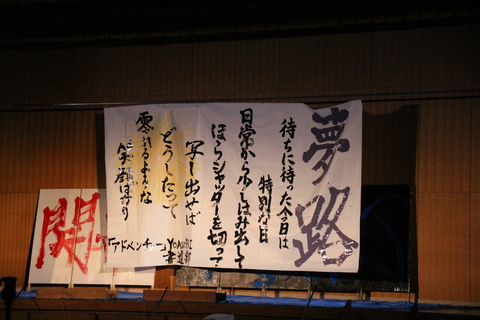 夢路
待ちに待った今日は
特別な日
日常から少しはみ出して
ほらシャッターを切って
写し出せば
どうしたって
零れるような
笑顔ばかり
「アドベンチャー」YOASOBI
書道部
開